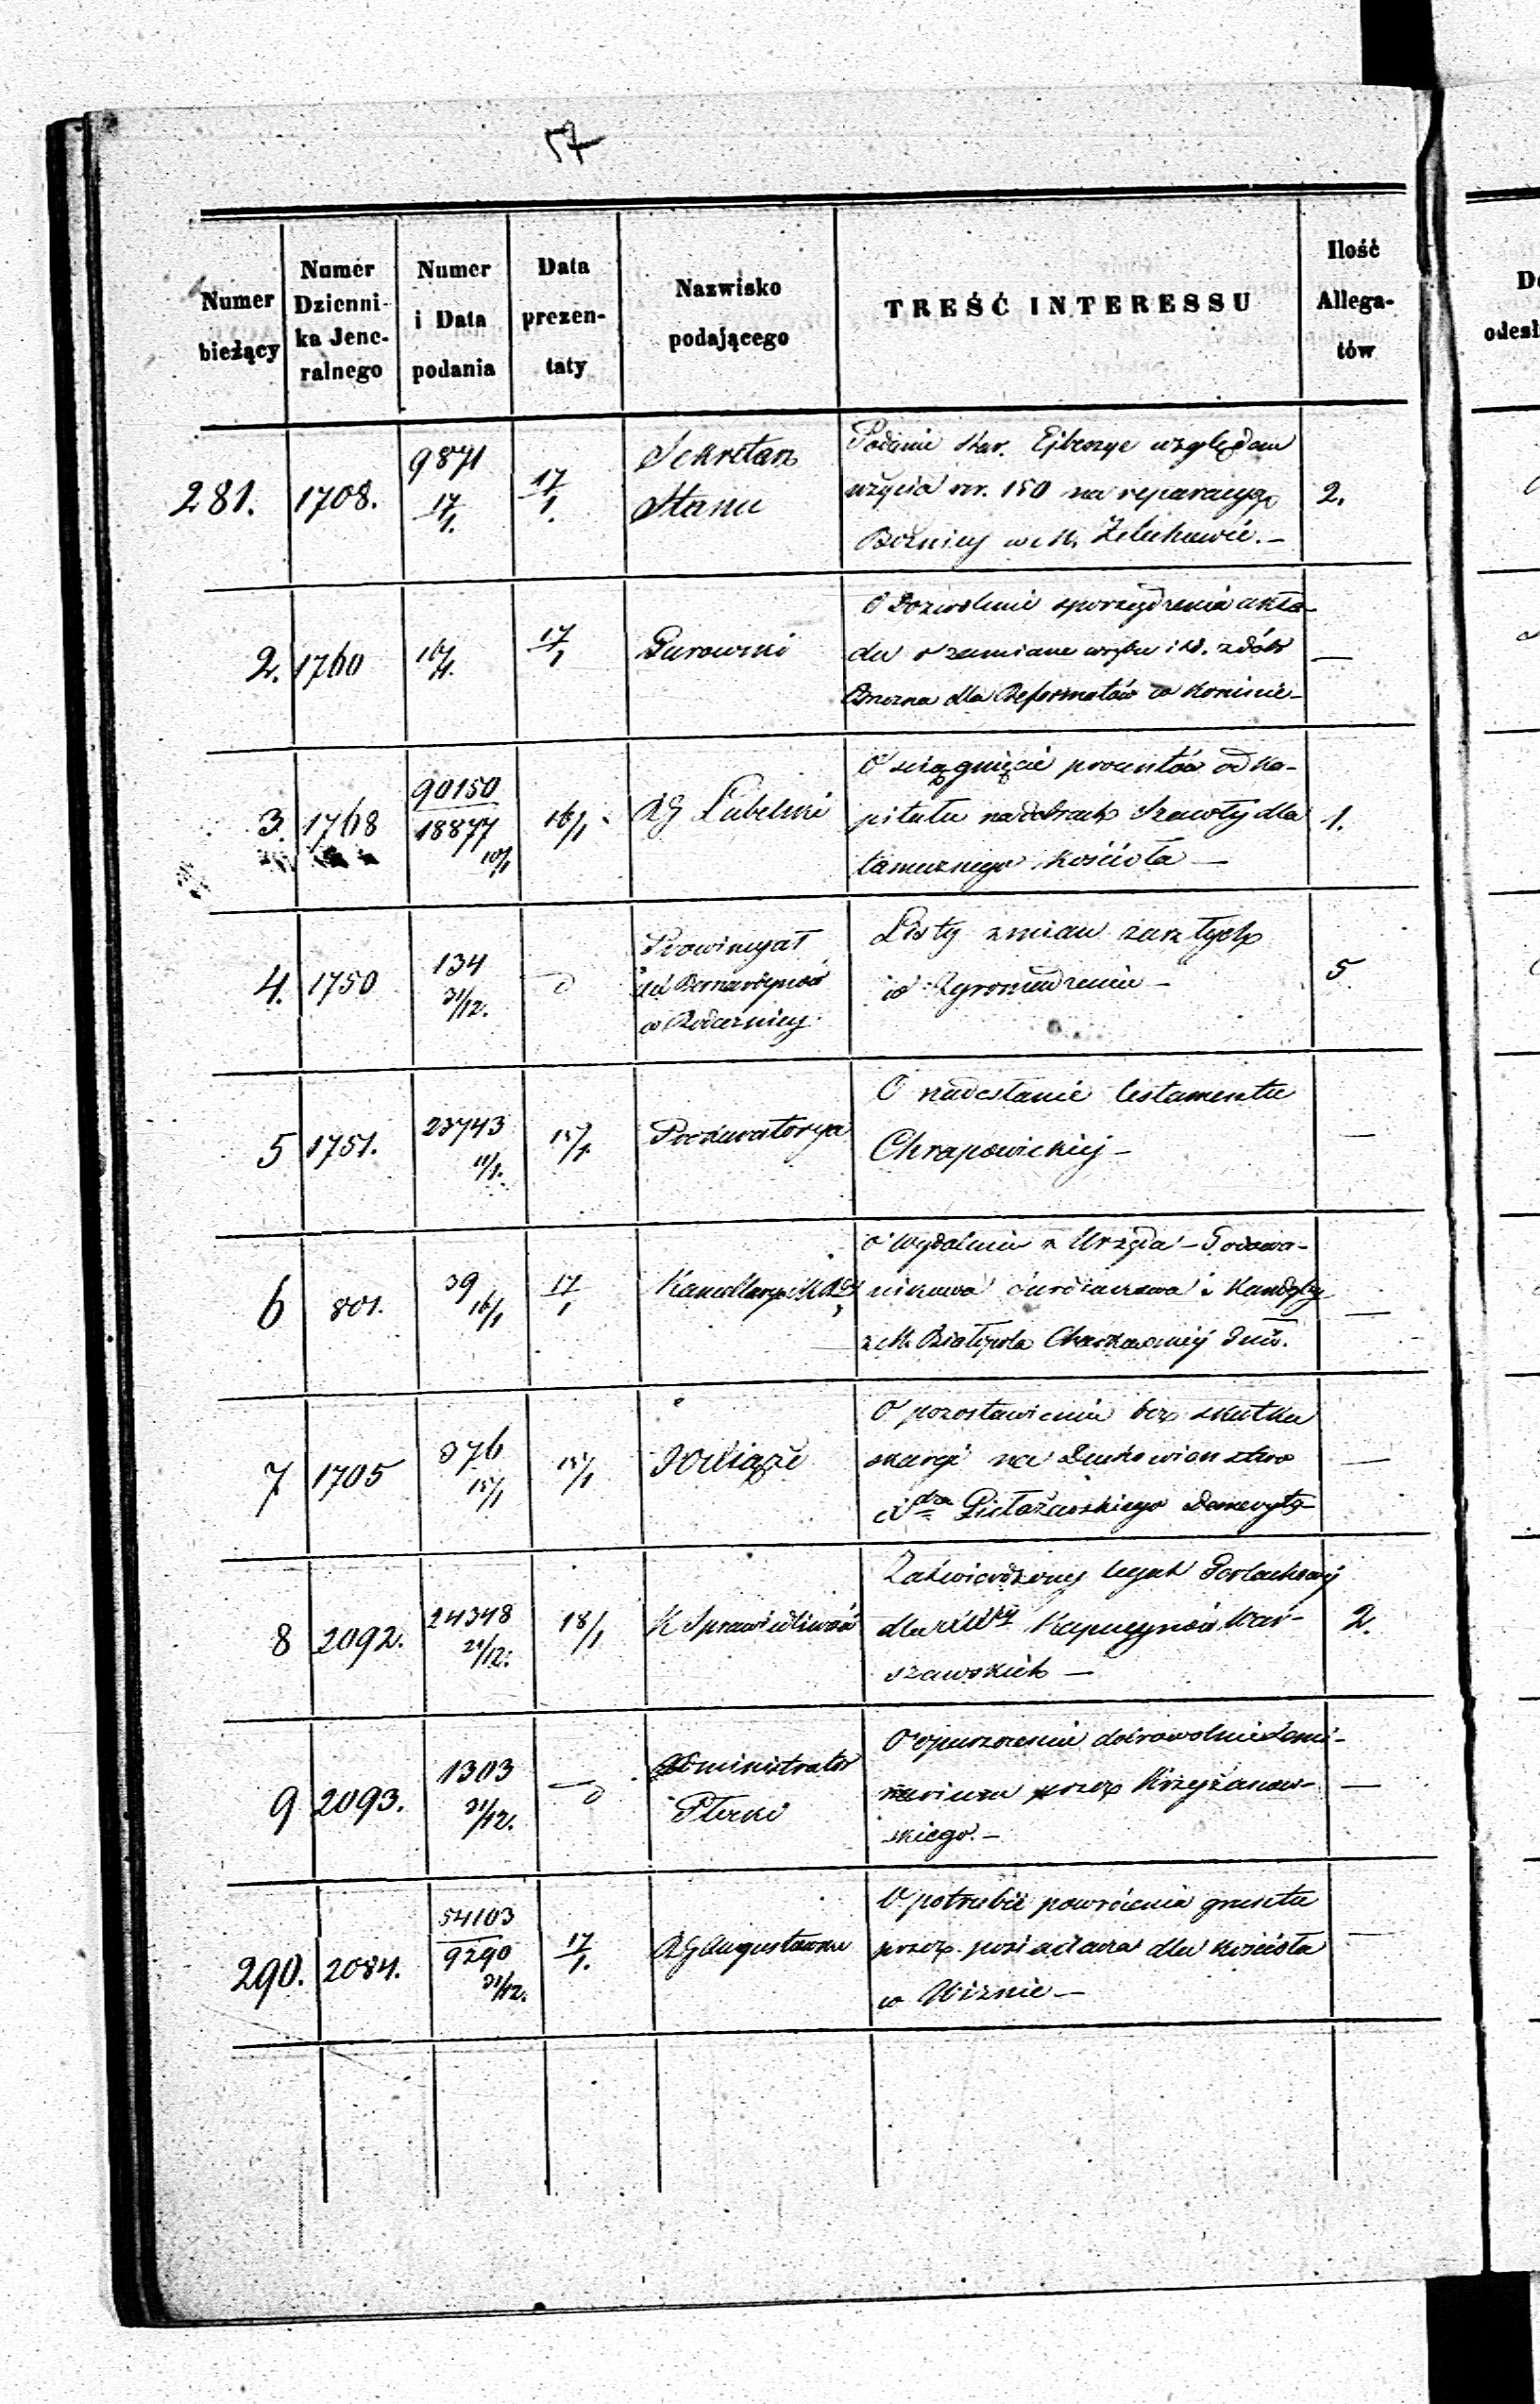 57
Numer bieżący | Numer Dziennika Jeneralnego | Numer i Data podania | Data prezentaty | Nazwisko podającego | TREŚĆ INTERESSU | Ilość Allegatów
281. | 1708. | 9871 17/1. | 17/1. | Sekretarz Stanu | Podanie Star. względem
użycia rsr. 150 na reparacyę | 2.
Bożnicy w M. Żelechowie. –
2. | 1760 | 16/1. | 17/1 | Gurowski | O dozwolenie sporządzenia ukła-
du o zamianę i t. d. z dóbr | —
dla Reformatów w Koninie –
3. | 1768 | 90150 18877 10/1 | 16/1 | RG Lubelski | O ściągnięcie procentów od ka-
pitału na dobrach Szawły dla | 1.
tamecznego Kościoła –
4. | 1750 | 134 31/12. | d | Prowincyał Bernardynów w Radecznicy | Listy zmian zaszłych
w Zgromadzeniu – | 5
5 | 1751. | 23743 11/1. | 15/1. | Prokuratorya | O nadesłanie testamentu
Chrapowickiej – | —
6 | 801. | 39 16/1 | 17/1 | | O wydaleniu z Urzędu –
i | —
z M.
7. | 1705 | 376 15/1 | 15/1 | | O pozostawieniu bez skutku
skargi na Duchowieństwo | —
8 | 2092. | 24348 21/12. | 18/1 | K Sprawiedliwości | Zatwierdzony legat
dla Kapucynów War- | 2.
szawskich –
9 | 2093. | 1303 31/12. | d | Administrator Płocki | O opuszczeniu dobrowolnie Semi-
narium przez Krzyżanow- | —
skiego. –
290. | 2084. | 54103 9290 31/12. | 17/1. | RG Augustowski | O potrzebie powrócenia gruntu
przez posiadacza dla Kościoła | —
w Wiznie –